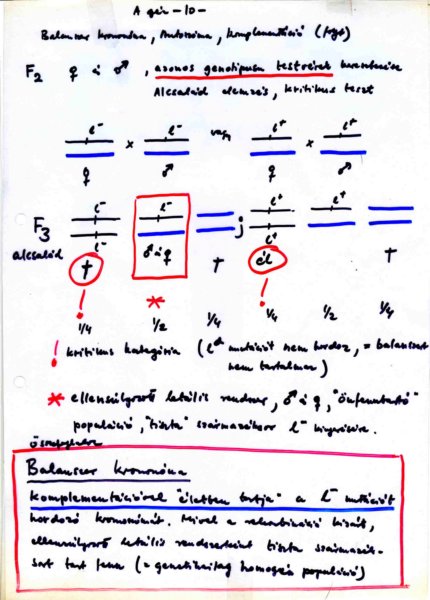 A gén -10-
Balanszer kromoszóma, Autoszóma, komplementáció (folyt)
F2 ♀ és ♂, azonos genotípusú testvérek keresztezése
Alcsalád elemzés, kritikus teszt
l- l- vagy l+ l+
x x
♀ ♂ ♀ ♂
F3 l- l- l+ l+
alcsalád l- ♂ és ♀ ; l+
† † él †
! * !
1/4 1/2 1/4 1/4 1/2 1/4
! kritikus kategória (l mutációt nem hordoz, = balanszert
nem tartalmaz)
* ellensúlyozó letális rendszer, ♂ és ♀, "önfenntartó"
populáció, "tiszta" származéksor l-
Balanszer kromoszóma
komplementációval "életben tartja" a l- mutációt
hordozó kromoszómát. Mivel a rekombináció kizárt,
ellensúlyozó letális rendszerként tiszta származék-
sort tart fenn (= genetikailag homogén populáció)